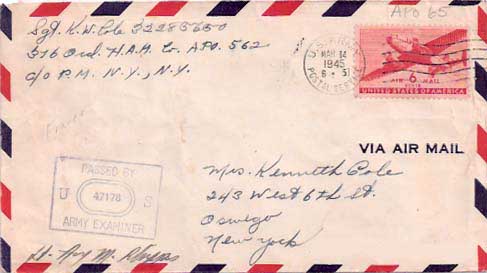 APO 65
Sgt. K.W. Cole 32285650
516 Ord. H.A.M. Co. APO. 562
c/o P.M. N.Y., N.Y.
U.S. ARMY
MAR 14
1945
POSTAL SERVICE
6¢
AIR MAIL
UNITED STATES OF AMERICA
VIA AIR MAIL
PASSED BY
U 47178 S
ARMY EXAMINER
Mrs. Kenneth Cole
243 West 6th St.
Oswego
New York
Lt. M.